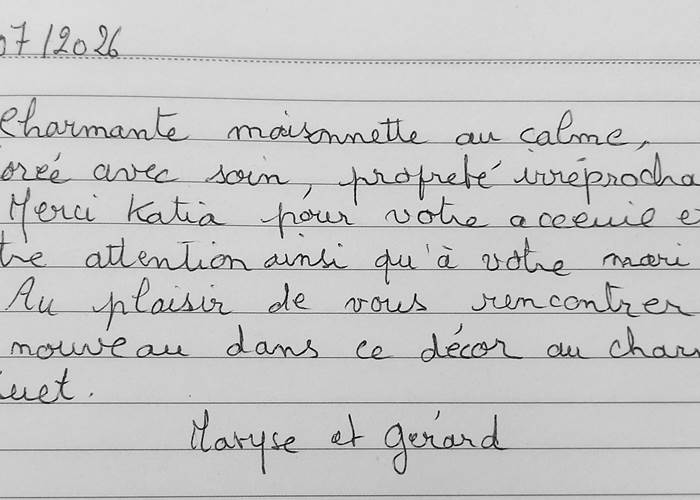 07/2026
Charmante maisonnette au calme,
orée avec soin, propreté irréprocha
Merci Katia pour votre acceuil et
tre attention ainsi qu'à votre mari
Au plaisir de vous rencontrer
nouveau dans ce décor au char
uet.
Maryse et Gérard